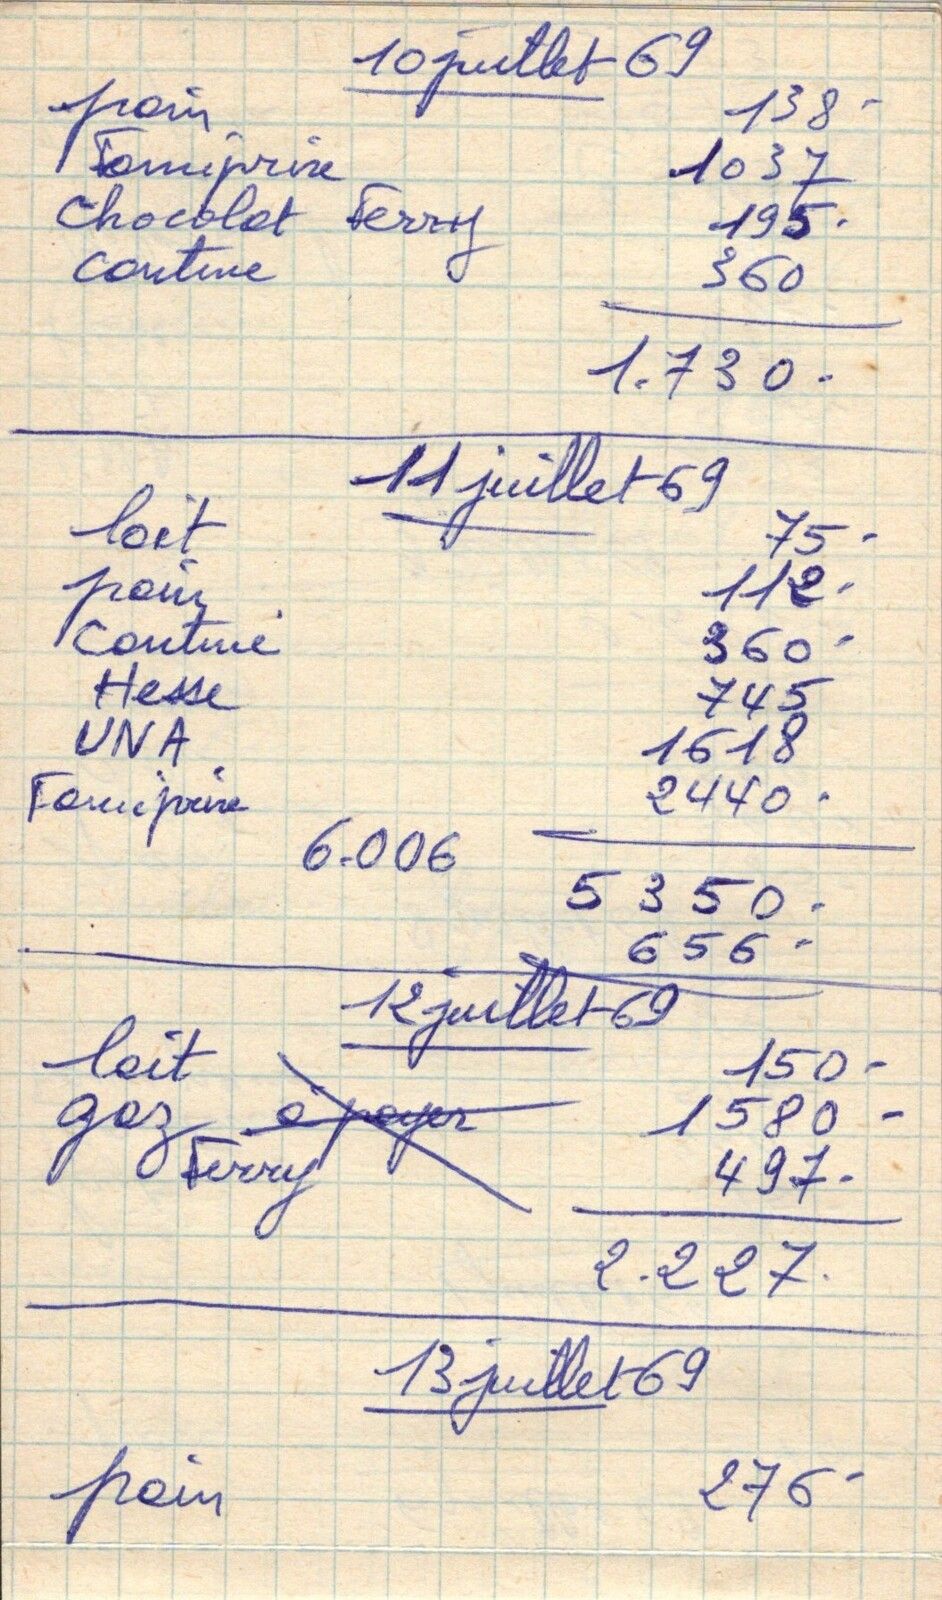 10 juillet 69
pain 138-
Famiprix 1037
Chocolat Ferry 195.
Cantine 360
1.730.
11 juillet 69
lait 75-
pain 112.
Cantine 360-
Hesse 745
UNA 1618
Famiprix 2440.
6.006
5350.
656-
12 juillet 69
lait 150-
gaz à payer 1580-
Ferry 497.
2.227.
13 juillet 69
pain 276-